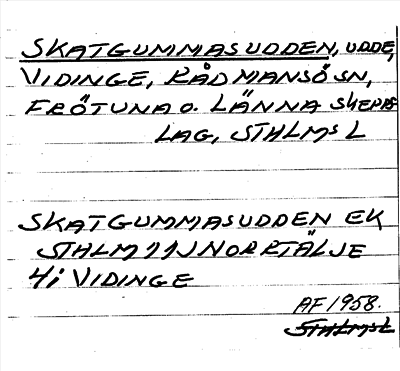 SKATGUMMASUDDEN, UDDE,
VIDINGE, RÅDMANSÖ SN,
FRÖTUNA O. LÄNNA SKEPPS
LAG, STHLMS L
SKATGUMMASUDDEN EK
STHLM 11J NORRTÄLJE
4i VIDINGE
AF 1958.
STHLMS L